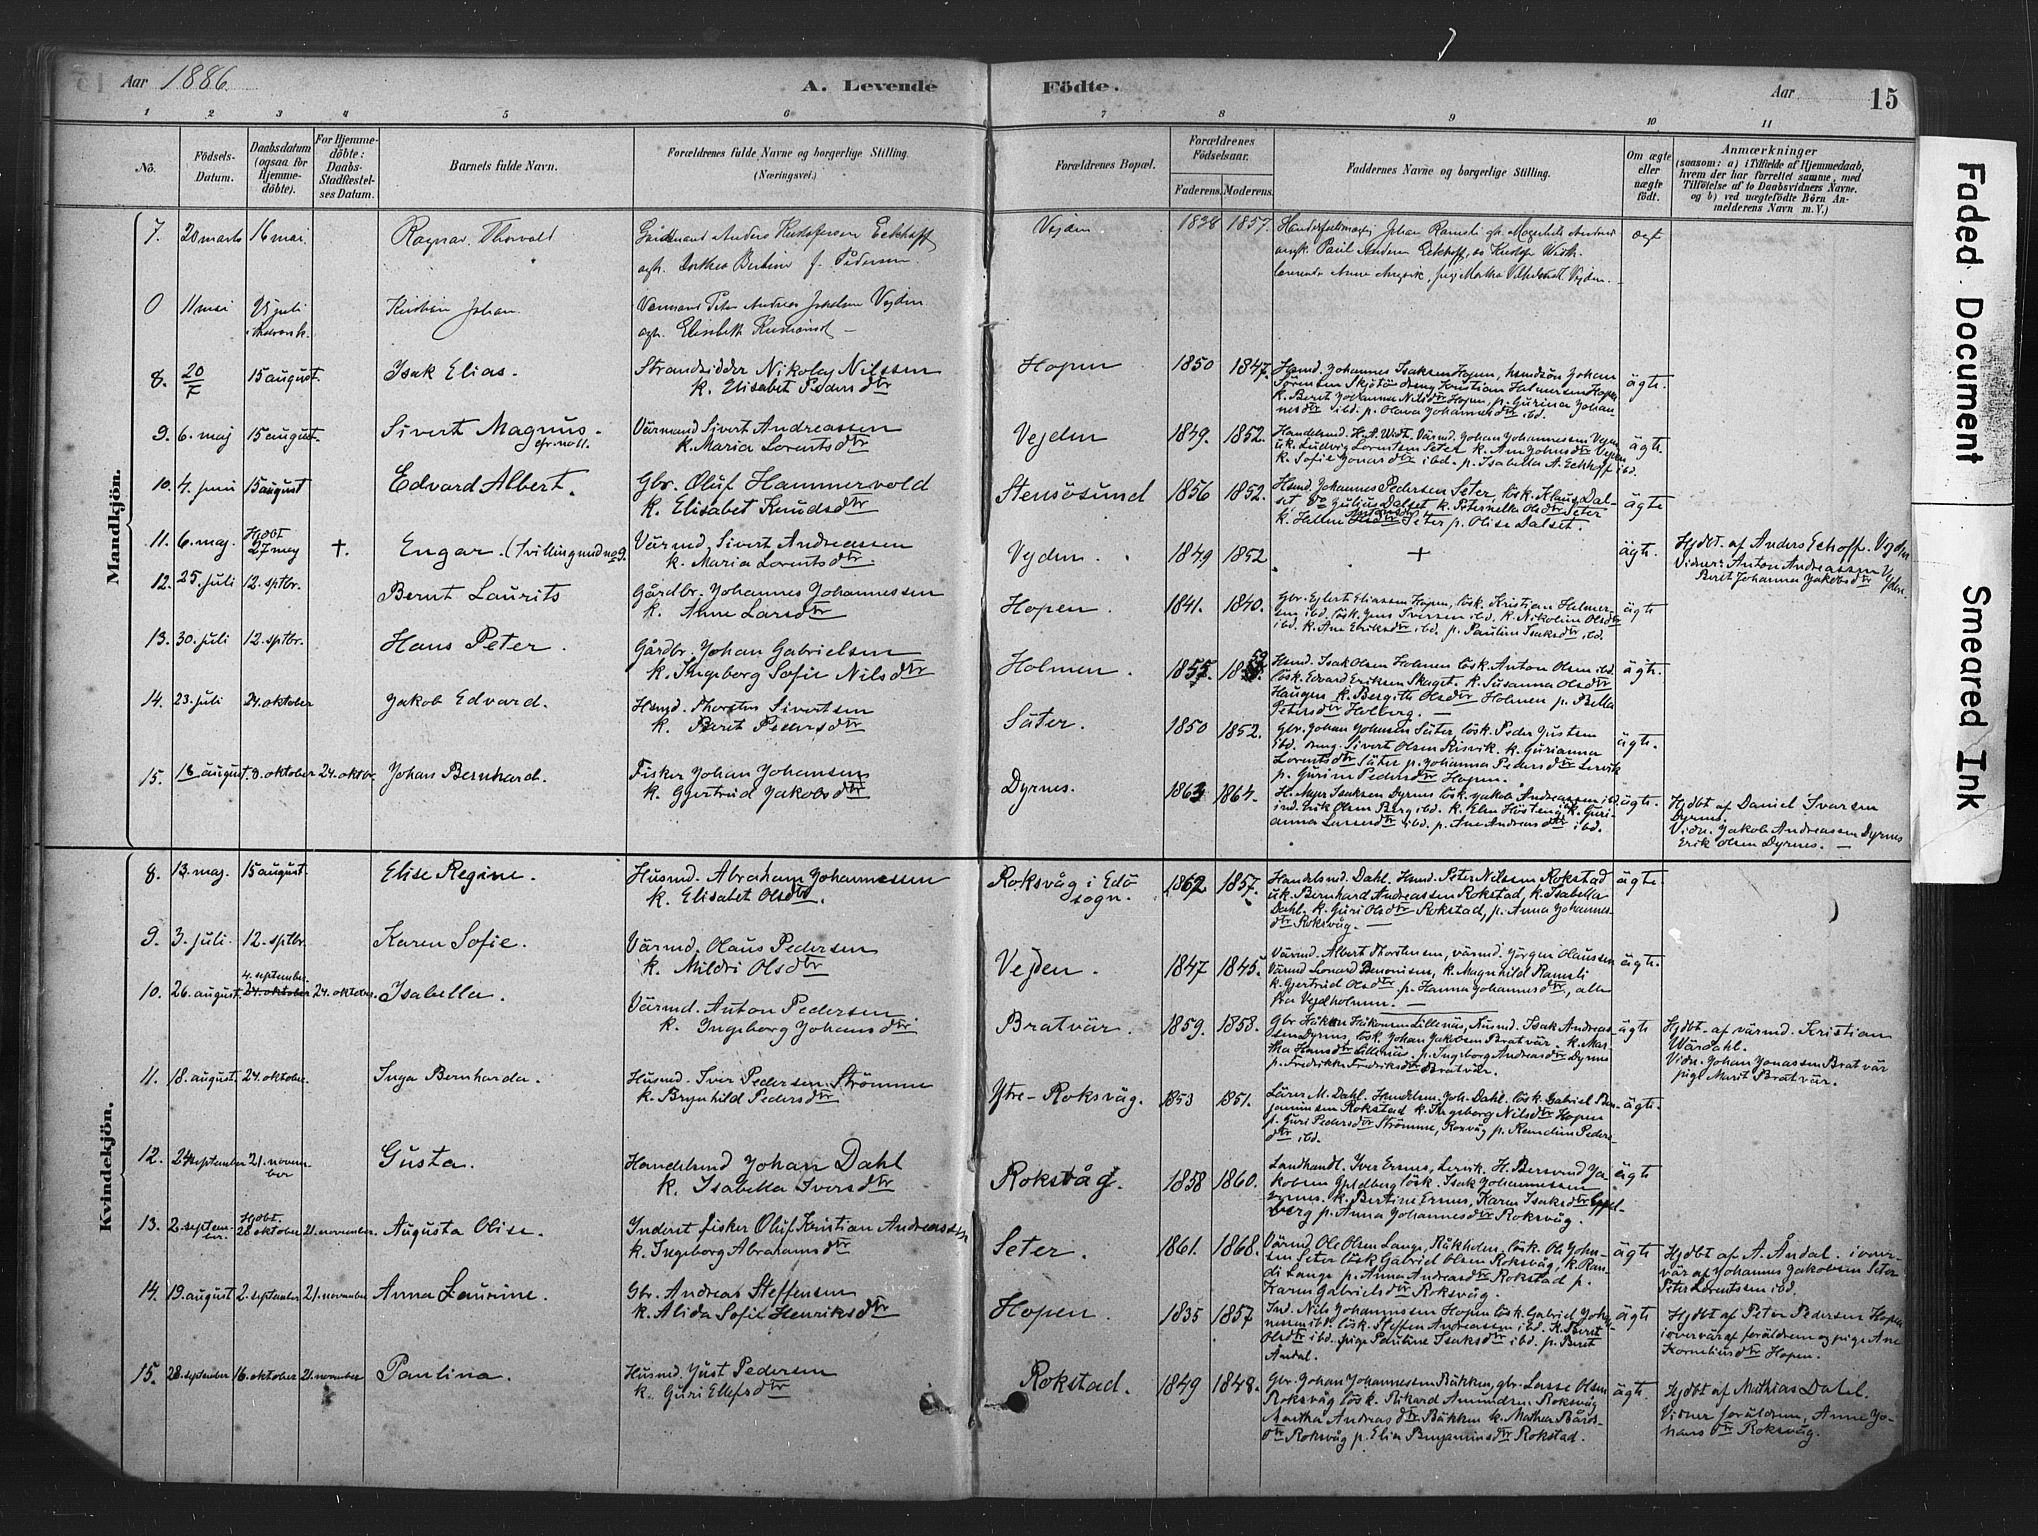 Aar 1886. A. Levende Födte. Aar 15
1 2 3 4 5 6 7 8 9 10 11
No.
Födsels-Datum.
Daabsdatum (ogsaa for Hjemmedöbte).
For Hjemmedöbte: Daabs-Stadfæstelses Datum.
Barnets fulde Navn.
Forældrenes fulde Navne og borgerlige Stilling.
(Næringsvei.)
Forældrenes Bopæl.
Forældrenes Födselsaar.
Faderens. Moderens.
Faddernes Navne og borgerlige Stilling.
Om ægte eller uægte födt.
Anmærkninger
(saasom: a) i Tilfælde af Hjemmedaab, hvem der har forrettet samme, med Tilföielse af to Daabsvidners Navne. og b) ved uægtefödte Börn Anmelderens Navn m. V.)
Mandkjön.
7. 20 marts 16 mai. Ragnar Thorvald Anders Eckhoff Vejden 1857.
Dorthea f. Pedersen
0 11 mai Juli Johan Peter Andreas Vejden
Elisabeth
8. 20/7 15 august. Isak Elias. Strandsidder Nikolaj Nilssen
k. Elisabet Hopen 1850 1847. Husmd. Johannes Isaksen Hopen, husmdsön Johan
Sörensen Skjötö dreng Kristian Helmersen Hopen
k. Berit Johanna Nilsdtr Hopen, p. Gurina Johannesdtr ibd. p. Olava Johannesdtr ibd. ägte.
9. 6. maj 15 august. Sivert Magnus. cfr. no 11. Värmand Sivert Andreassen
k. Maria Lorentsdtr Vejden 1849. 1852. Handelsmd. Widt. Värmd. Johan Johannesen Vejen
uk. Ludvig Lorentsen Seter k. Ane Johnsdtr Vejen
k. Sofie Jonasdtr ibd. p. Isabella A. Eckhoff ibd. ägte.
10. 4. juni 15 august Edvard Albert. Gbr. Oluf Hammervold
k. Elisabet Knudsdtr Stensösund 1856 1852. Husmd. Johannes Pedersen Seter, lösk. Klaus Dalset, do Julius Dalset k. Peternelle Olsdtr Seter
Seter p. Olise Dalset. ägte
11. 6. maj. Hjdbt 27 maj +. Engar. (Tvilling md no 9. Värmd. Sivert Andreassen
k. Maria Lorentsdtr. Vejden. 1849 1852 + ägte. Hjdbt. af Anders Echoff. Vejden
Vidner: Anton Andreassen Vejden.
Berit Johanna Jakobsdtr
12. 25. juli 12. sptbr. Bernt Laurits Gårdbr. Johannes Johannessen
k. Anne Larsdtr Hopen. 1841. 1840. Gbr. Ejlert Eliassen Hopen, lösk. Kristian Helmersen ibd. lösk. Jens Iversen ibd. k. Nikoline Olsdtr
ibd. k. Ane Eriksdtr ibd. p. Pauline Isaksdtr ibd. ägte
13. 30. juli 12. sptbr. Hans Peter. Gårdbr. Johan Gabrielsen
k. Ingeborg Sofie Nilsdtr Holmen. 1855. Husmd. Isak Olsen Holmen lösk. Anton Olsen ibd
lösk. Edvard Eriksen Skaget. k. Susanna Olsdtr
Haugen k. Bergith Olsdtr Holmen p. Bella
Petersdtr Holberg. ägte.
14. 23. juli 24. oktober Jakob Edvard. Husmd. Thorsten Sivertsen
k. Berit Pedersdtr Säter. 1850 1852. Gbr. Johan Johansen Säter, lösk. Peder Justsen
ibd. dreng. Sivert Olsen Risvik. k. Gurianna
Lorentsdtr Säter p. Johanna Pedersdtr Lervik
p. Gurine Pedersdtr Hopen. ägte.
15. 18 august. 9. oktober 24. oktbr. Johan Bernhard. Fisker Johan Johansen
k. Gjertrud Jakobsdtr Dyrnes. 1863 1864. Isaksen Dyrnes lösk. Jakob Andreassen ibd.
ind. Erik Olsen Berg ibd. k. Elen k. Gurianna Larsdtr ibd. p. Ane Andreasdtr ibd. ägte. Hjdbt af Daniel Ivarsen
Dyrnes.
Vidn. Jakob Andreassen Dyrnes
Erik Olsen Dyrnes.
Kvindekjön.
8. 13. maj. 15 august. Elise Regine. Husmd. Abraham Johannessen
k. Elisabet Olsdtr. Roksvåg i Edö sogn. 1862 1857. Handelsmd. Dahl. Husmd. Peter Nilssen Rokstad
uk. Bernhard Andreassen Rokstad, k. Isabella
Dahl, k. Guri Olsdtr Rokstad, p. Anna Johannesdtr Roksvåg. ägte.
9. 3. juli. 12. sptbr. Karen Sofie. Värmd. Olaus Pedersen
k. Mildri Olsdtr Vejden. 1847 1845. Värmd. Albert Thorstensen, värmd. Jörgen Olaussen
Värmd Leonard Benonisen, k. Magnhild Ramsli
k. Gjertrud Olsdtr. p. Hanna Johannesdtr, alle
fra Vejdholmen. ägte.
10. 26. august. 4. september 24. oktober 24. oktober. Isabella. Värmd. Anton Pedersen
k. Ingeborg Johansdtr Bratvär. 1859. 1858. Gbr. Håkon Håkonsen Lillenäs, Husmd. Isak Andreassen Dyrnes, lösk. Johan Jakobsen Bratvär. k. Martha Hansdtr Lillenäs. p. Ingeborg Andreasdtr Dyrnes
p. Fredrikke Fredriksdtr Bratvär. ägte Hjdbt. af värmd. Kristian
Wärdahl.
Vidn. Johan Jonassen Bratvär
pige Marit Bratvär.
11. 18. august. 24. oktober. Inga Bernharda. Husmd. Iver Pedersen Strömme
k. Brynhild Pedersdtr Ytre-Roksvåg. 1853 1851. Lärer M. Dahl. Handelsm. Joh. Dahl. lösk. Gabriel Benjaminsen Rokstad k. Ingeborg Nilsdtr Hopen
p. Guri Pedersdtr Strömme, Roxvåg p. Randine Pedersdtr ibd. ägte.
12. 24 september 21. november Gusta. Handelsmd Johan Dahl
k. Isabella Iversdtr Roksvåg. 1858 1860. Landhandl. Iver Ersnes, Lervik. H. Bersvend Jakobsen Gjeldberg lösk. Isak Johannessen
Dyrnes. k. Bertine Ersnes, Karen Isaksdtr Gjeldberg p. Anna Johannesdtr Roksvåg. ägte
13. 2. september. Hjdbt. 28 oktober 21. november. Augusta Olise. Inderst fisker Oluf Kristian Andreassen
k. Ingeborg Abrahamsdtr Seter. 1861. 1868. Värmd. Ole Olsen Lange, Räkholen, lösk. Ole Johnsen Seter lösk. Gabriel Olsen Roksvåg, k. Randi Lange p. Anna Andreasdtr Rokstad p.
Karen Gabrielsdtr Roksvåg. ägte Hjdbt af A. Åndal. i overvär af Johannes Jakobsen Seter
Peter Lorentssen ibd.
14. 19. august 2. september 21. november Anna Laurine. Gbr. Andreas Steffensen
k. Alida Sofie Henriksdtr Hopen. 1835 1857 Ind. Nils Johannessen Hopen lösk. Gabriel Johannesen ibd. lösk. Steffen Andreassen ibd. k. Berit
Olsdtr ibd. pige Pauline Isaksdtr ibd. p. Berit
Åndal. ägte Hjdbt af Peter Pedersen Hopen
i overvär af foräldrene og pige Ane
Korneliusdtr Hopen.
15. 28. september 16. oktober 21. november Paulina. Husmd. Just Pedersen
k. Guri Ellefsdtr Rokstad. 1849 1848. Gbr. Johan Johannessen Bäkken, gbr. Lasse Olsen
Roksvåg lösk. Rikard Amundsen Roksvåg
Martha Andreasdtr Bäkken k. Mathea Bårdsdtr Roksvåg p. Elia Benjaminsdtr Rokstad. ägte. Hjdbt af Mathias Dahl.
Vidner foräldrene, Anne Johansdtr Roksvåg.
Faded Document
Smeared Ink